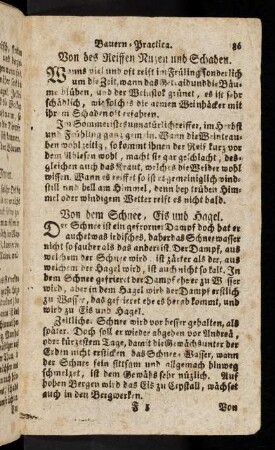 Bauern-Practica. 86
Von des Reiffen Nuzen und Schaden.
Wanns viel und oft reift im Früling sonderlich
um die Zeit, wann das Getraid und die Bäu-
me blühen, und der Weinstok grünet, es ist sehr
schädlich, wie solches die armen Weinhäcker mit
ihrem Schaden oft erfahren.
Im Sommer ists unnatürlich reiffer, im Herbst
und Frühling ganz gemein. Wann die Weintrau-
ben wohl zeitig, so kommt ihnen der Reif kurz vor
dem Ablesen wohl, macht sie gar geschlacht, des-
gleichen auch das Kraut, welches die Weiber wohl
wissen. Wann es reift so ist es gemeiniglich wind-
still und hell am Himmel, denn bey trüben Him-
mel oder windigem Wetter reift es nicht bald.
Von dem Schnee, Eis und Hagel.
Der Schnee ist ein gefrorner Dampf doch hat er
auch etwas irdisches, daher das Schnewasser
nicht so sauber als das ander ist. Der Dampf, aus
welchem der Schnee wird, ist zärter als der, aus
welchem der Hagel wird, ist auch nicht so kalt. In
dem Schnee gefrieret der Dampf eher er zu Wasser
wird, aber in dem Hagel wird der Dampf erstlich
zu Wasser, das gefrieret ehe es herab kommt, und
wird zu Eis und Hagel.
Zeitlicher Schnee wird vor besser gehalten, als
später. Doch soll er wieder abgehen vor Andreä,
oder kürzestem Tage, damit die Gewächs unter der
Erden nicht ersticken. das Schnee-Wasser, wann
der Schnee fein sittsam und allgemach hinweg
schmelzet, ist dem Gewächs sehr nüzlich. Auf
hohen Bergen wird das Eis zu Crystall, wächset
auch in den Bergwerken.
F 5 Von